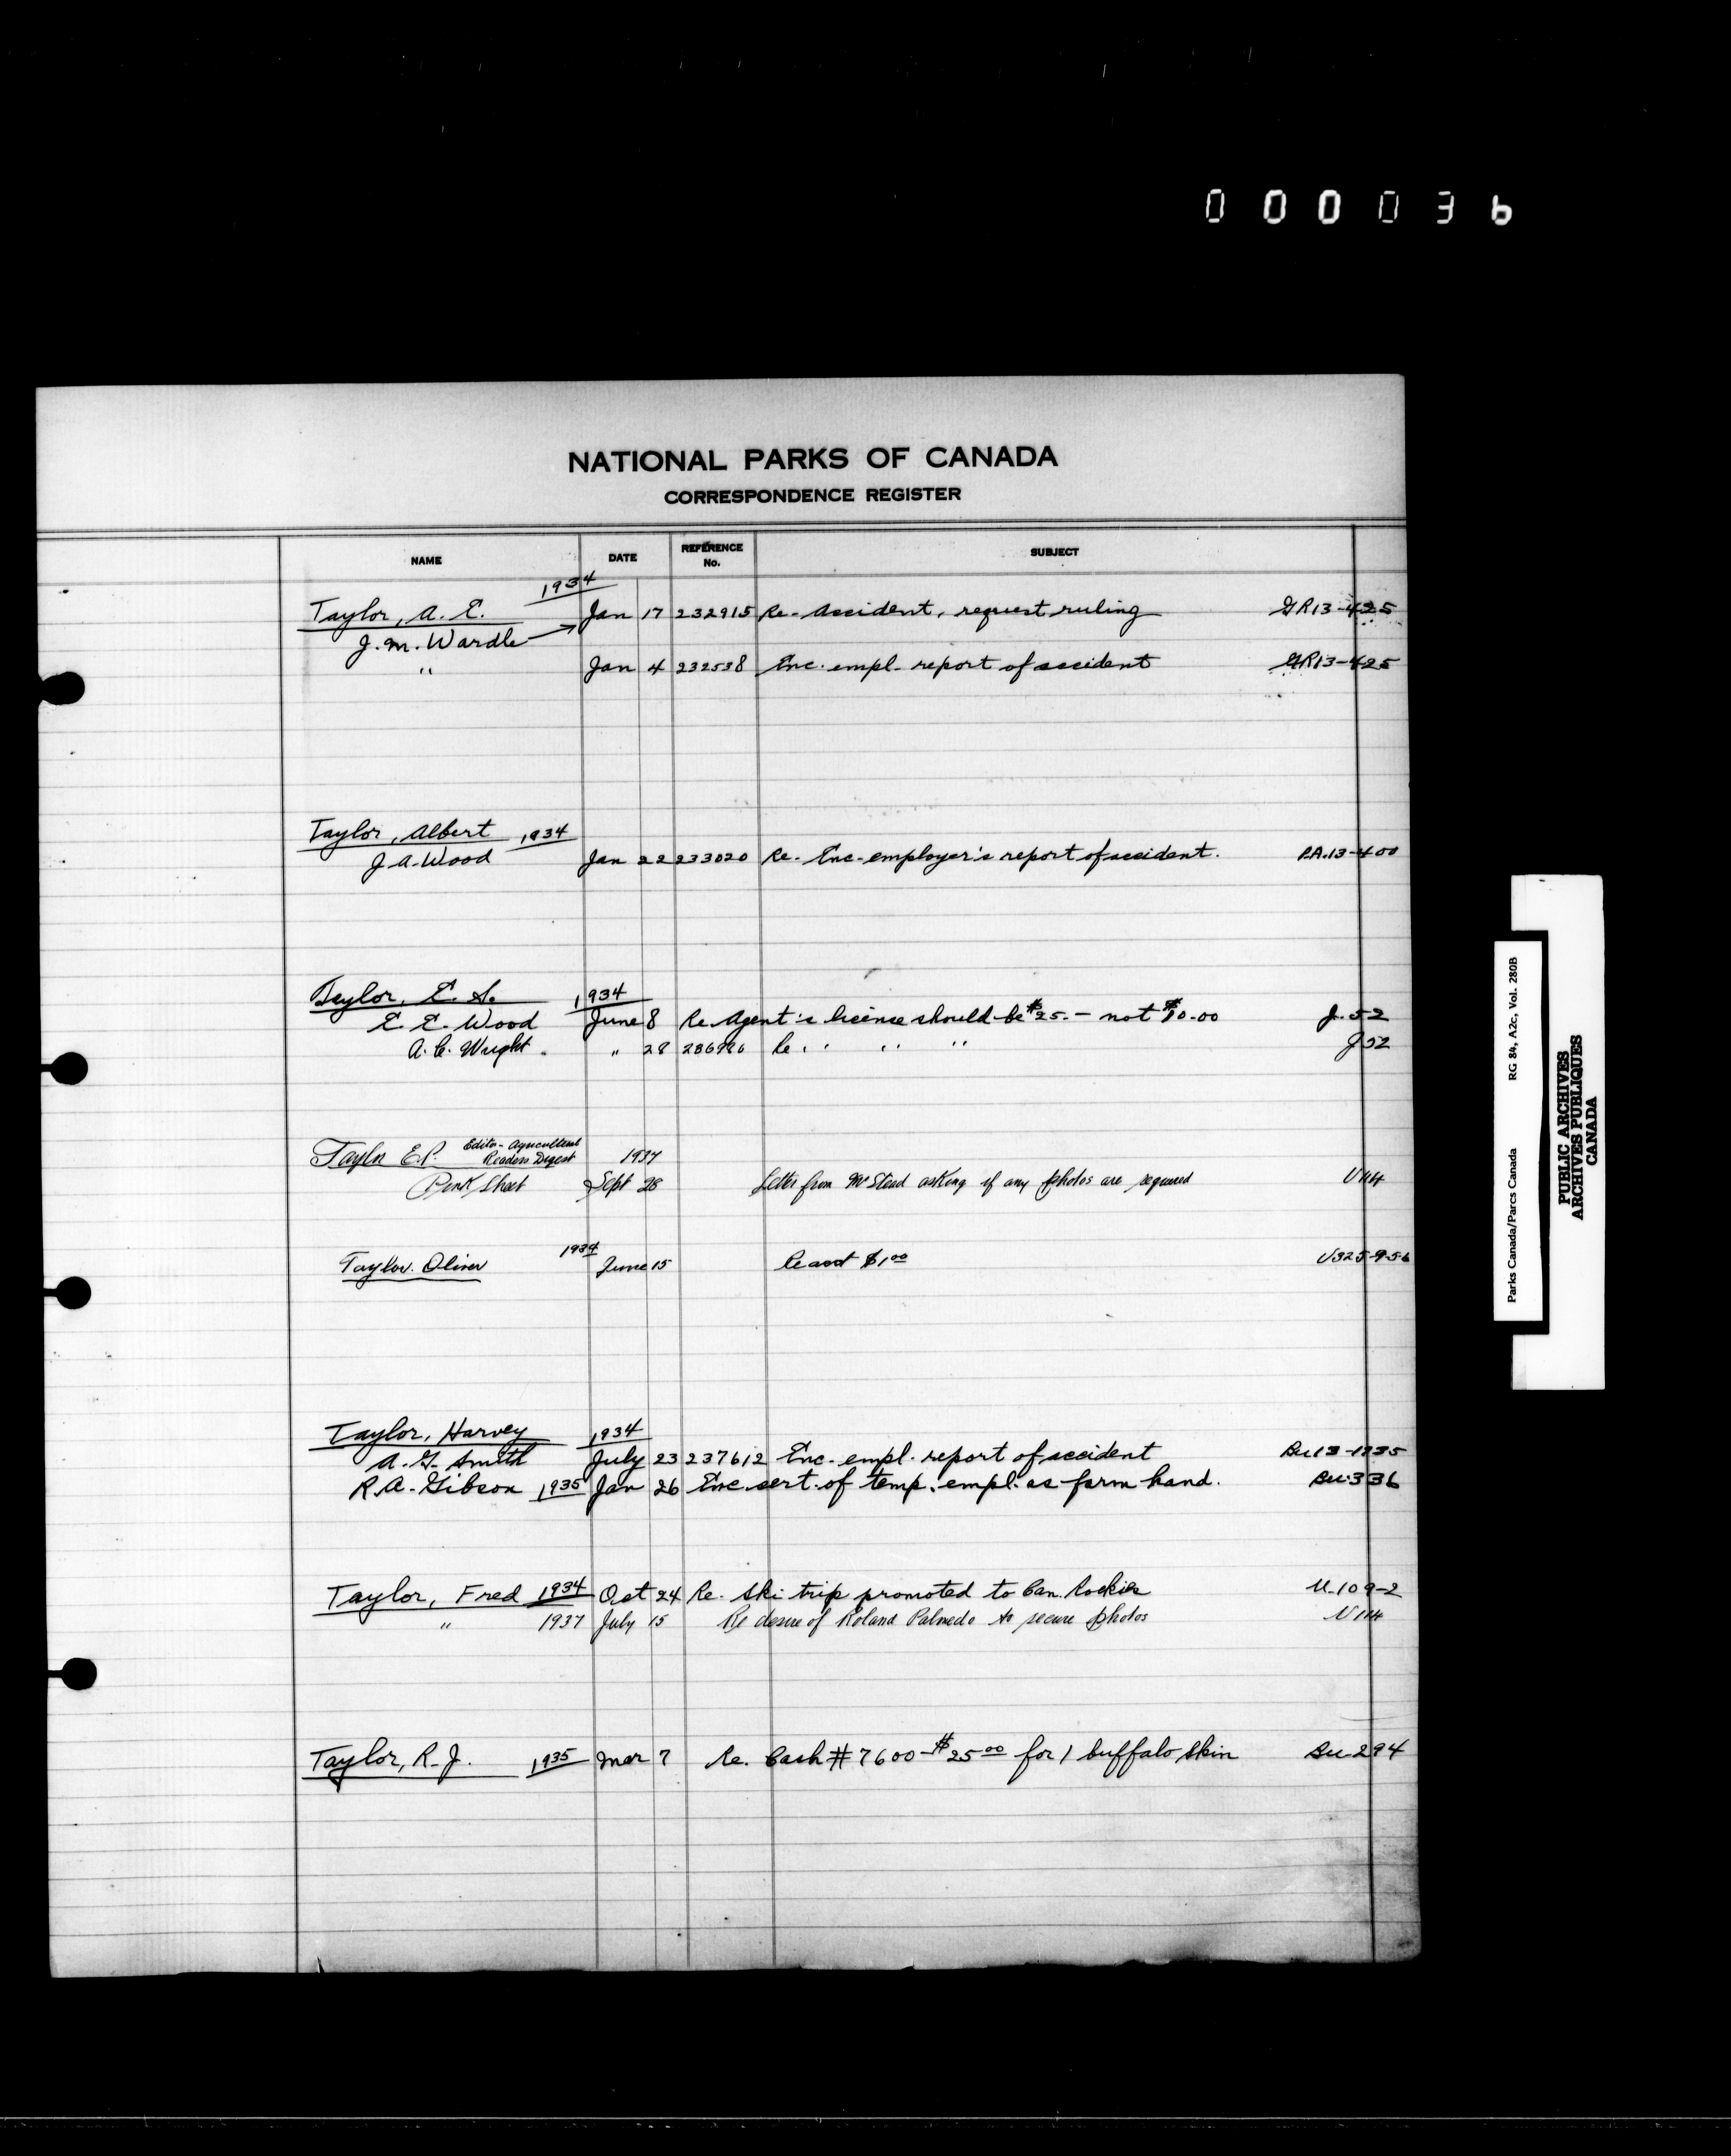 000036
NATIONAL PARKS OF CANADA
CORRESPONDENCE REGISTER
NAME DATE REFERENCE No. SUBJECT
1934
Taylor, A. E. Jan 17 232915 Re- Accident, request ruling GR13-425
J. M. Wardle
" Jan 4 232538 Enc. empl. report of accident GR13-425
Taylor, Albert 1934
J. A. Wood Jan 22 233020 Re. Enc. employer's report of accident. P.A.13-400
Taylor, E. S. 1934
E. E. Wood June 8 Re. Agent's license should be $25.- not $10.00 J.52
A. C. Wright. " 28 Re. " " " J52
Taylor E.P. Editor - Agricultural
Readers Digest 1937
Pink Sheet Sept 28 Letter from Mr Stead asking if any photos are required U114
Taylor. Oliver 1934 June 15 $1.00 U325-9-56
Taylor, Harvey 1934
A. G. Smith July 23 237612 Enc. empl. report of accident Bu13-1235
R. A. Gibson 1935 Jan 26 Enc. cert. of temp. empl. as farm hand. Bu.336
Taylor, Fred 1934 Oct 24 Re. Ski trip promoted to Can. Rockies U.109-2
" 1937 July 15 Re desire of Roland Palmedo to secure photos U114
Taylor, R. J. 1935 Mar 7 Re. Cash # 7600 - $25.00 for 1 buffalo skin Bu.294
Parks Canada/Parcs Canada RG 84, A2c, Vol. 280B
PUBLIC ARCHIVES
ARCHIVES PUBLIQUES
CANADA